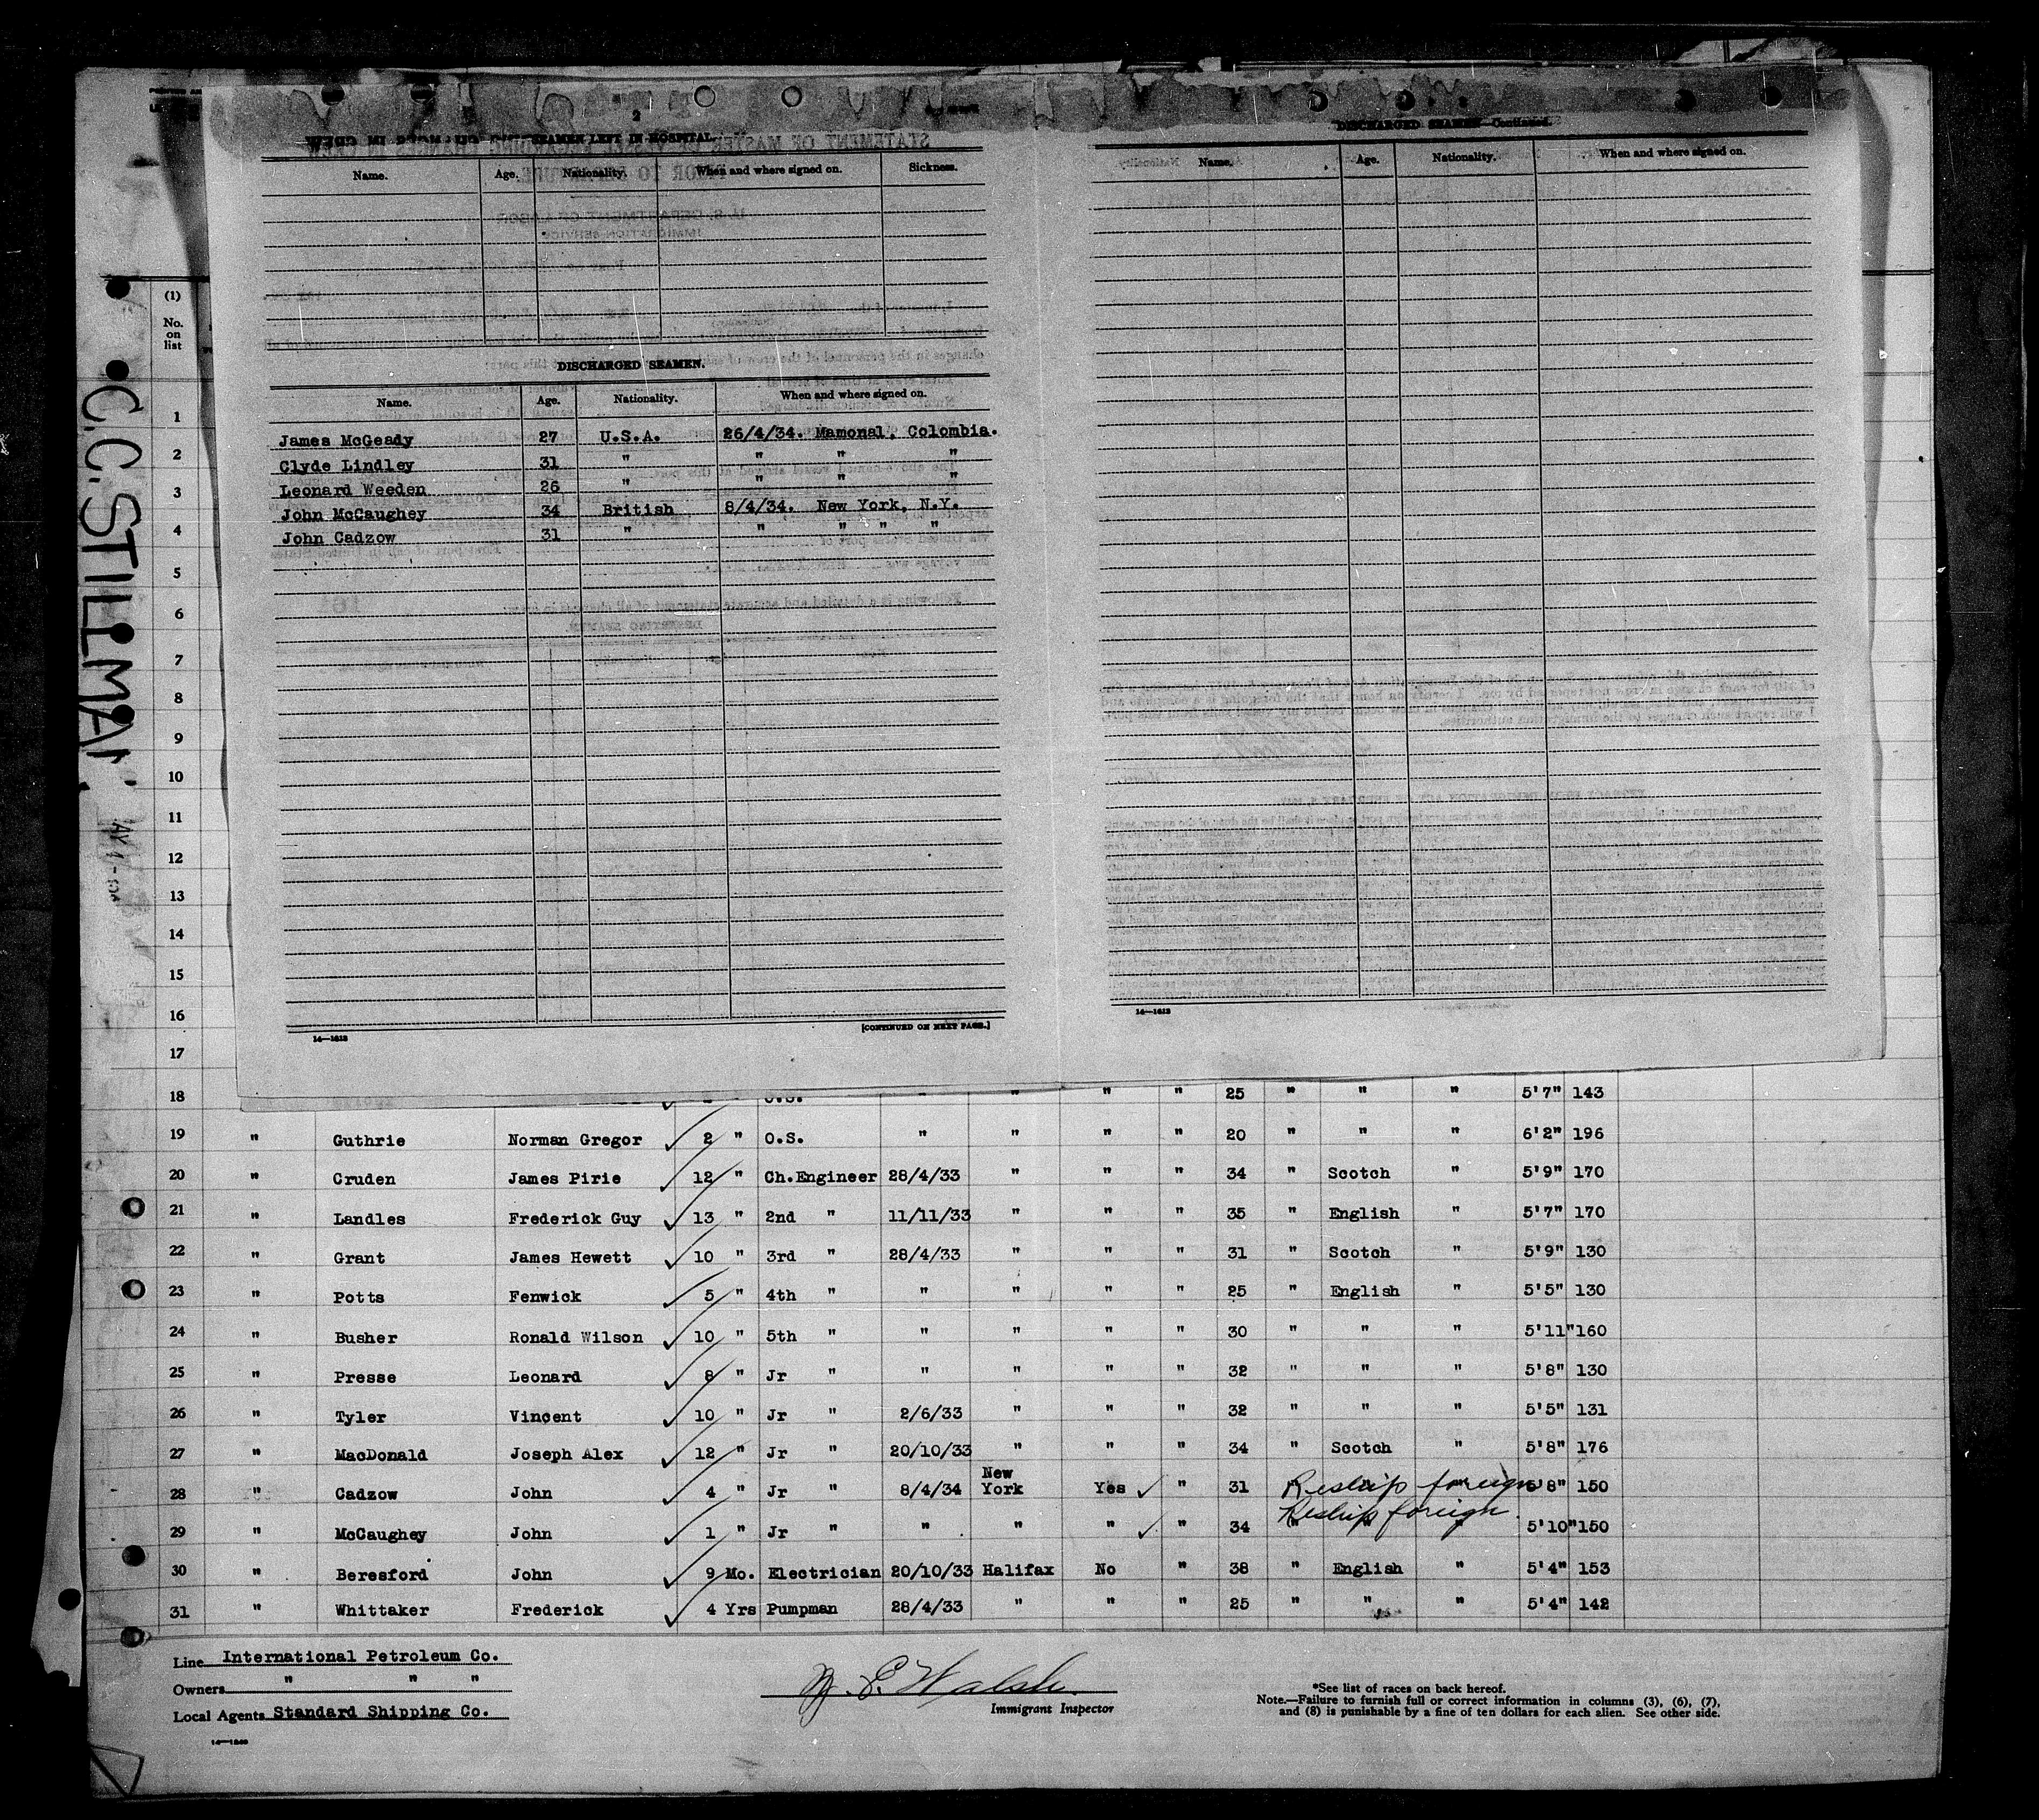 2
SEAMEN LEFT IN HOSPITAL.
Name. Age. Nationality. When and where signed on. Sickness.
DISCHARGED SEAMEN.
Name. Age. Nationality. When and where signed on.
James McGeady 27 U.S.A. 26/4/34. Mamonal, Colombia.
Clyde Lindley 31 " " " "
Leonard Weeden 26 " " " "
John McCaughey 34 British 8/4/34. New York, N.Y.
John Cadzow 31 " " " " "
[CONTINUED ON NEXT PAGE.]
14—1613
DISCHARGED SEAMEN—Continued.
Name. Age. Nationality. When and where signed on.
14—1613
C.C. STILLMAN
(1)
No.
on
list
1
2
3
4
5
6
7
8
9
10
11
12
13
14
15
16
17
18 " " " " 25 " " " 5'7" 143
19 " Guthrie Norman Gregor 2 " O.S. " " " " 20 " " " 6'2" 196
20 " Cruden James Pirie 12 " Ch.Engineer 28/4/33 " " " 34 " Scotch " 5'9" 170
21 " Landles Frederick Guy 13 " 2nd " 11/11/33 " " " 35 " English " 5'7" 170
22 " Grant James Hewett 10 " 3rd " 28/4/33 " " " 31 " Scotch " 5'9" 130
23 " Potts Fenwick 5 " 4th " " " " " 25 " English " 5'5" 130
24 " Busher Ronald Wilson 10 " 5th " " " " " 30 " " " 5'11" 160
25 " Presse Leonard 8 " Jr " " " " " 32 " " " 5'8" 130
26 " Tyler Vincent 10 " Jr " 2/6/33 " " " 32 " " " 5'5" 131
27 " MacDonald Joseph Alex 12 " Jr " 20/10/33 " " " 34 " Scotch " 5'8" 176
28 " Cadzow John 4 " Jr " 8/4/34 New York Yes " 31 Reship foreign 5'8" 150
29 " McCaughey John 1 " Jr " " " " " 34 Reship foreign 5'10" 150
30 " Beresford John 9 Mo. Electrician 20/10/33 Halifax No " 38 " English " 5'4" 153
31 " Whittaker Frederick 4 Yrs Pumpman 28/4/33 " " " 25 " " " 5'4" 142
Line International Petroleum Co.
Owners " " "
Local Agents Standard Shipping Co.
Walsh
Immigrant Inspector
*See list of races on back hereof.
Note.—Failure to furnish full or correct information in columns (3), (6), (7),
and (8) is punishable by a fine of ten dollars for each alien. See other side.